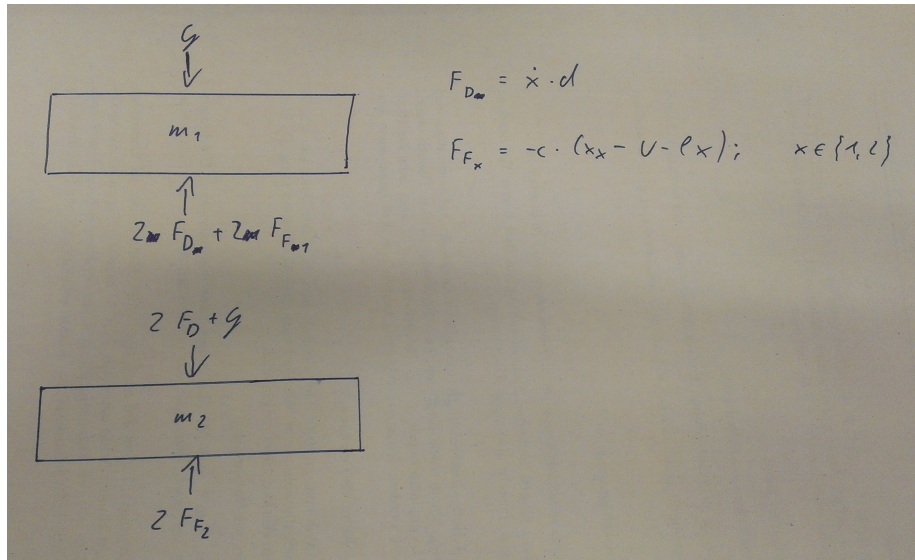 G
m₁
2 F_D + 2 F_F₁
2 F_D + G
m₂
2 F_F₂
F_D = ẋ · d
F_Fₓ = -c · (xₓ - U - lₓ); x ∈ {1,2}